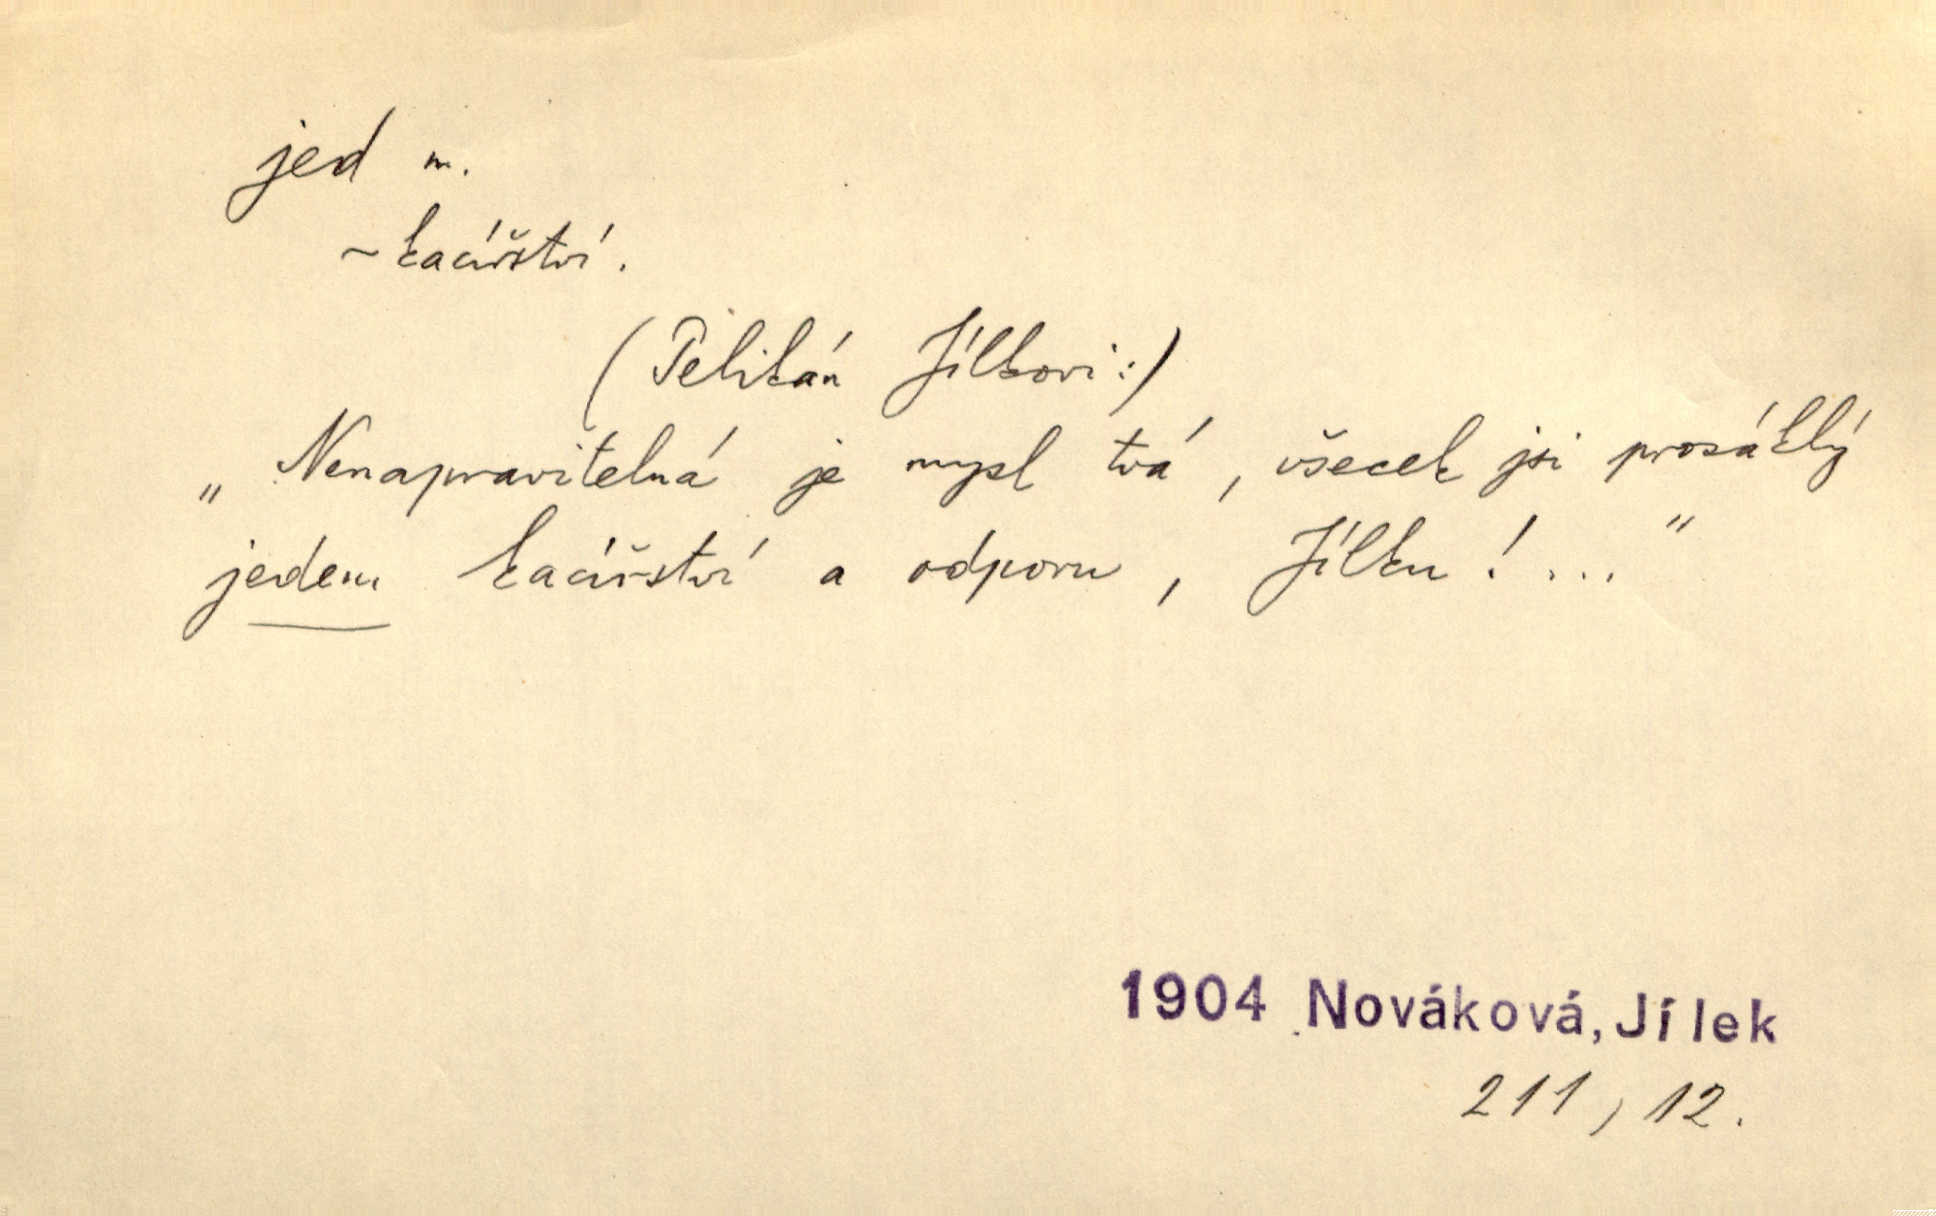 jed m.
~ kacířství.
(Pelikán Jílkovi:)
„Nenapravitelná je mysl tvá, všecek jsi prosáklý
jedem kacířství a odporu, Jílku!..."
1904 Nováková, Jílek
211, 12.